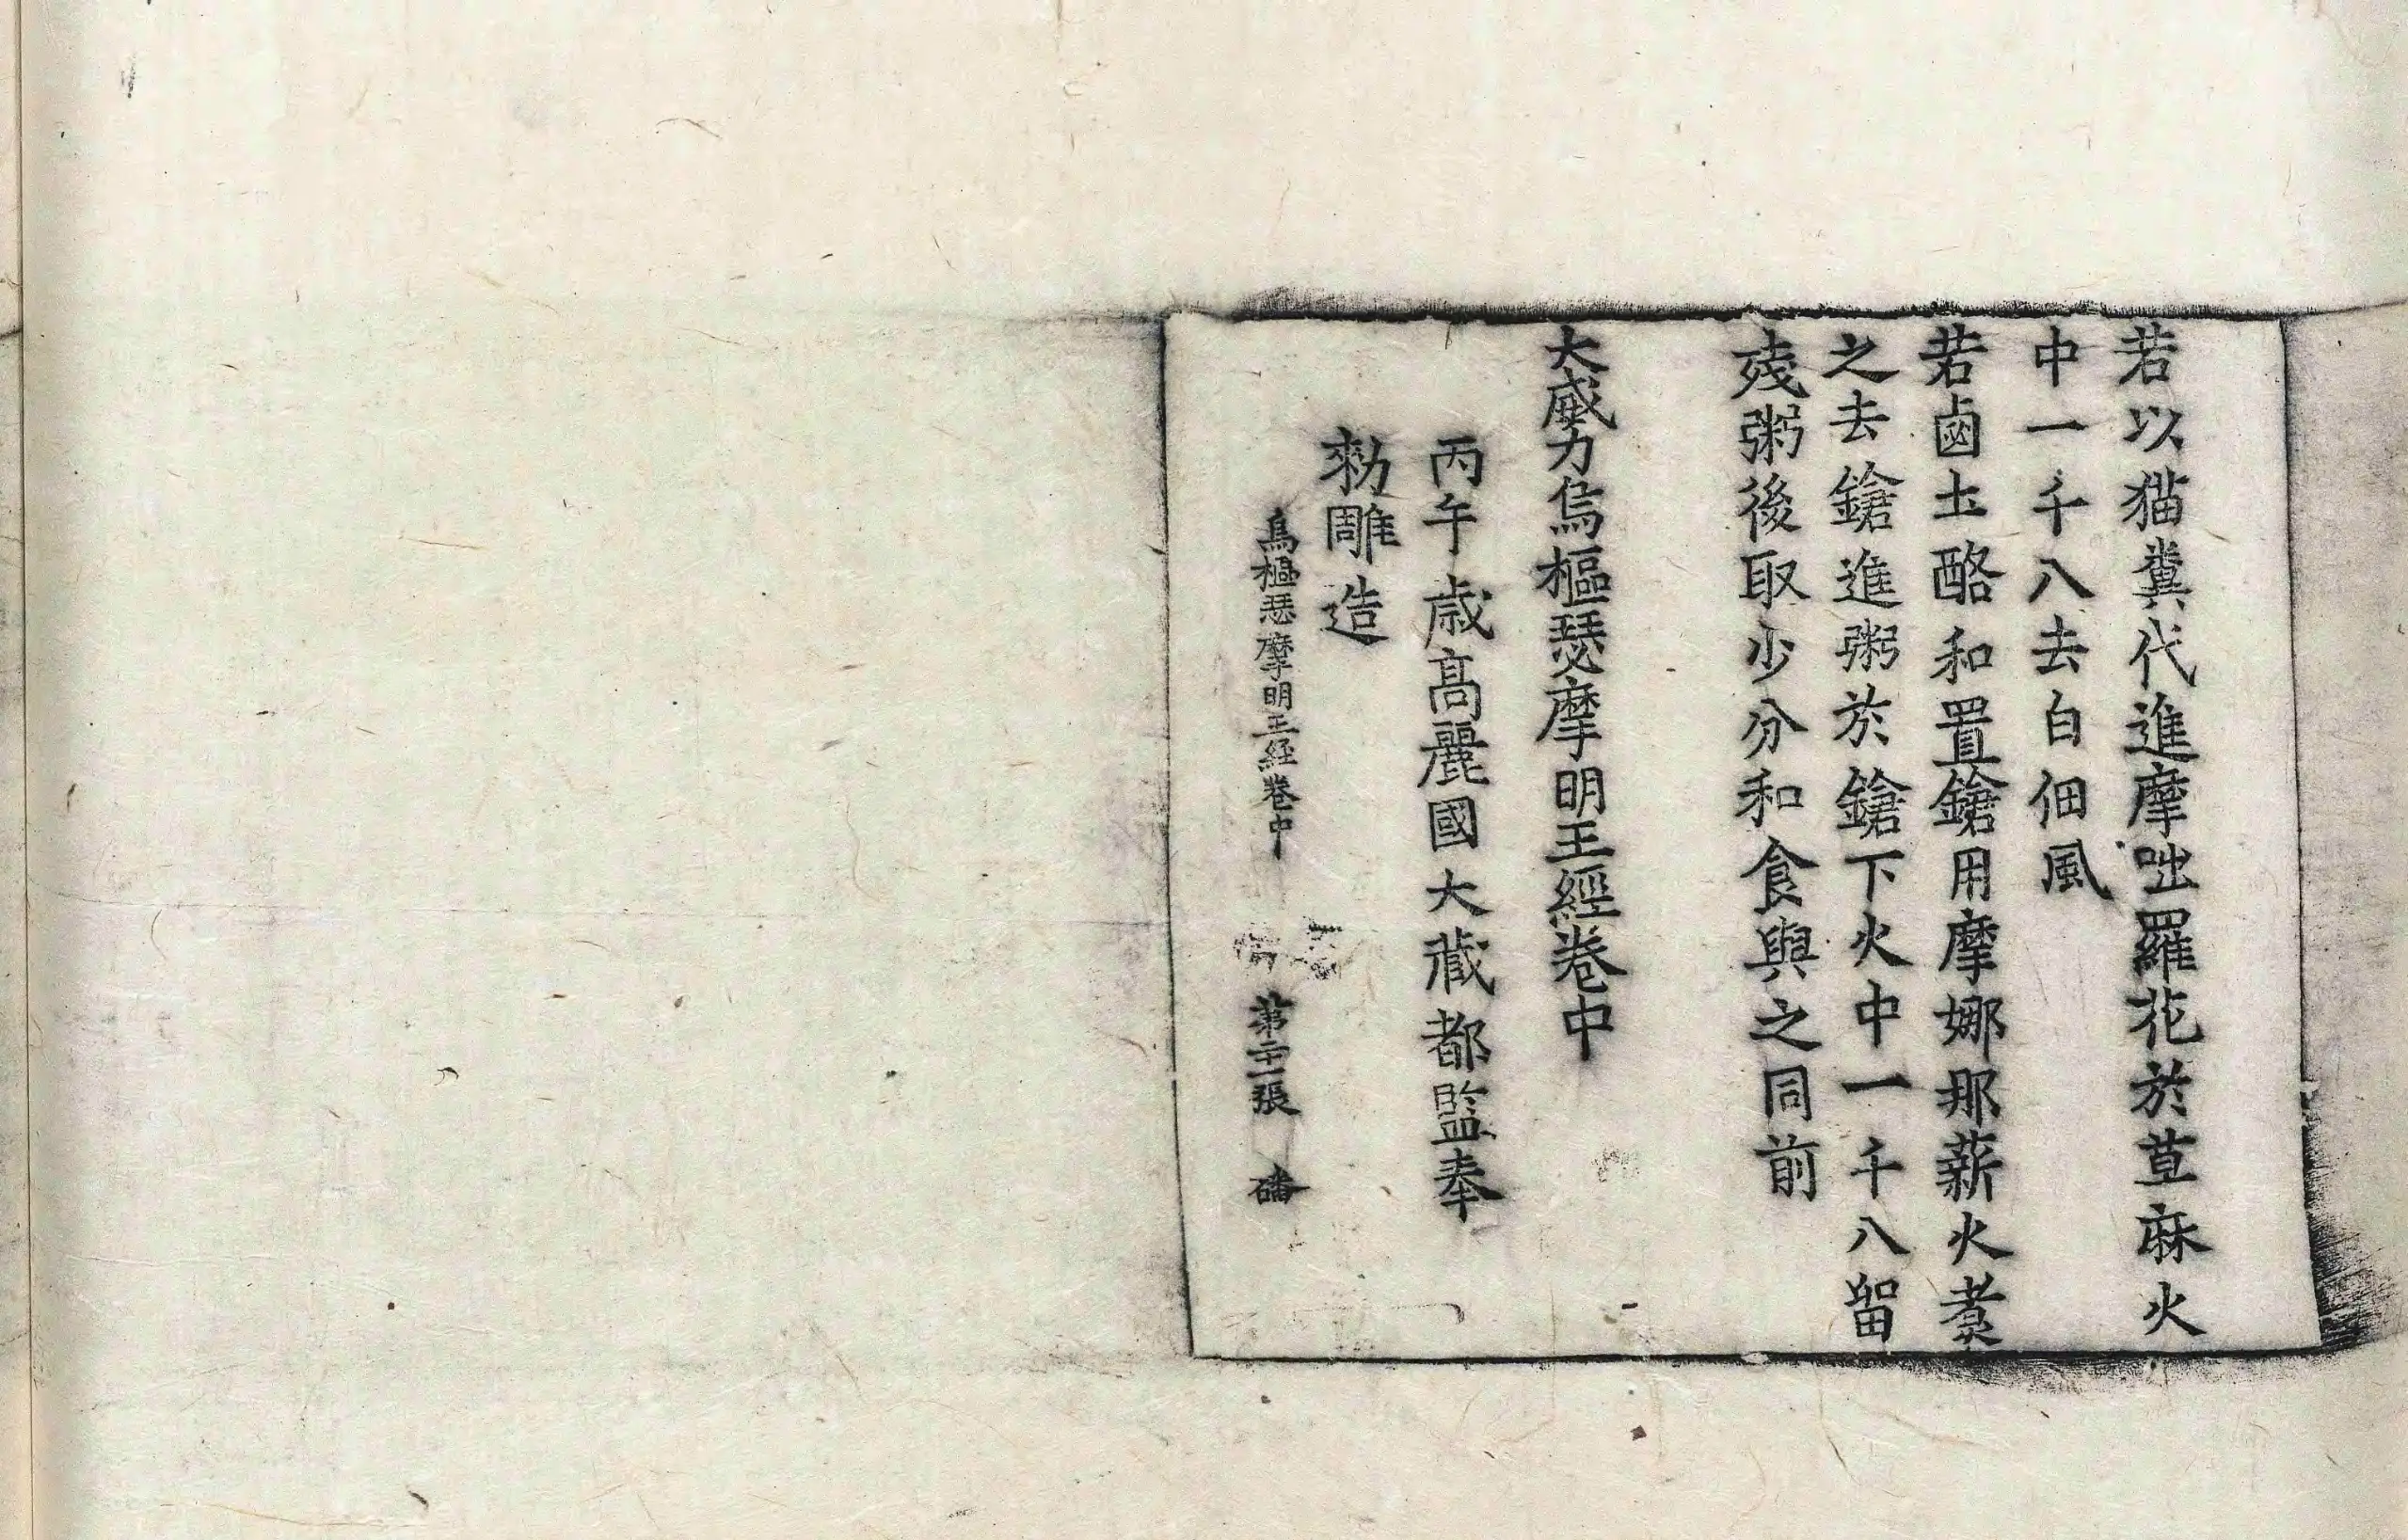 若以猫糞代進摩咄羅花於萆麻火
中一千八去白佃風
若鹵土酪和置鎗用摩娜那薪火煮
之去鎗進粥於鎗下火中一千八留
殘粥後取少分和食與之同前
大威力烏樞瑟摩明王經卷中
丙午歲高麗國大藏都監奉
勑雕造
烏樞瑟摩明王經卷中 第二十一張 磻